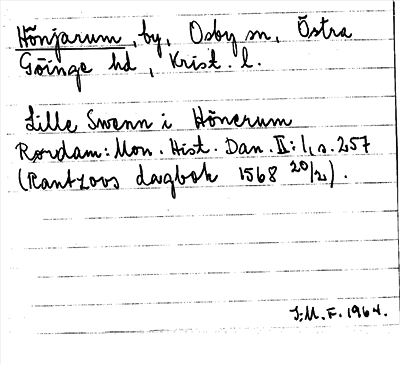 Hönjarum, by, Osby sn, Östra
Göinge hd, Krist. l.
Lille Swenn i Hönerum
Rørdam: Mon. Hist. Dan. II: 1, s. 257
(Rantzovs dagbok 1568 20/2).
I.M.F. 1964.